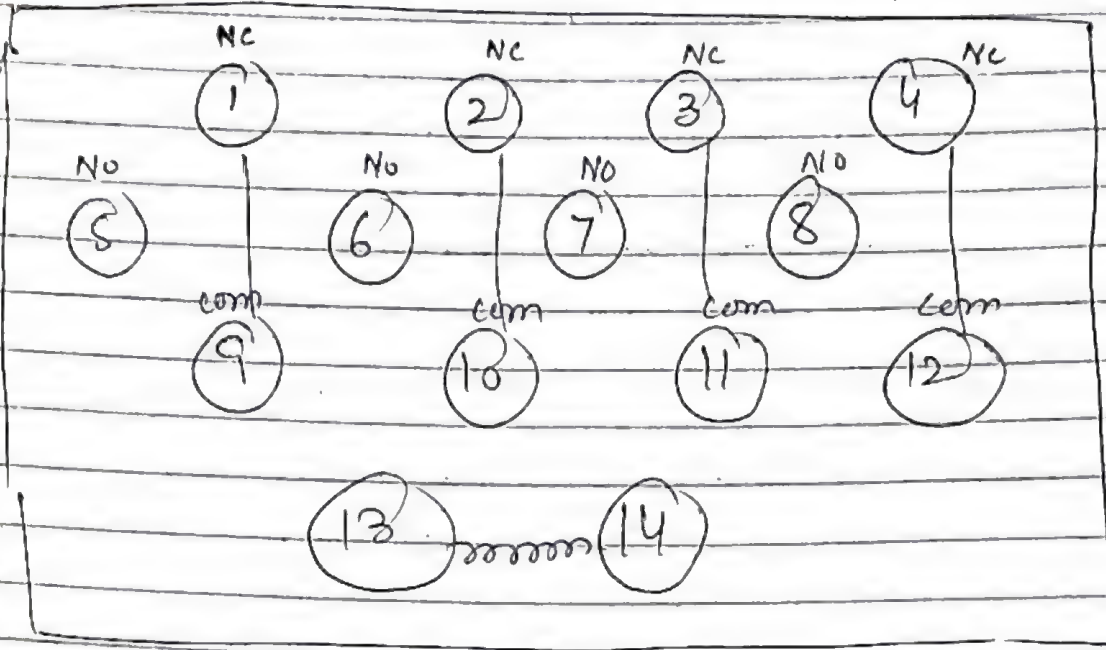 NC NC NC NC
1 2 3 4
NO NO NO NO
5 6 7 8
com com com com
9 10 11 12
13 14